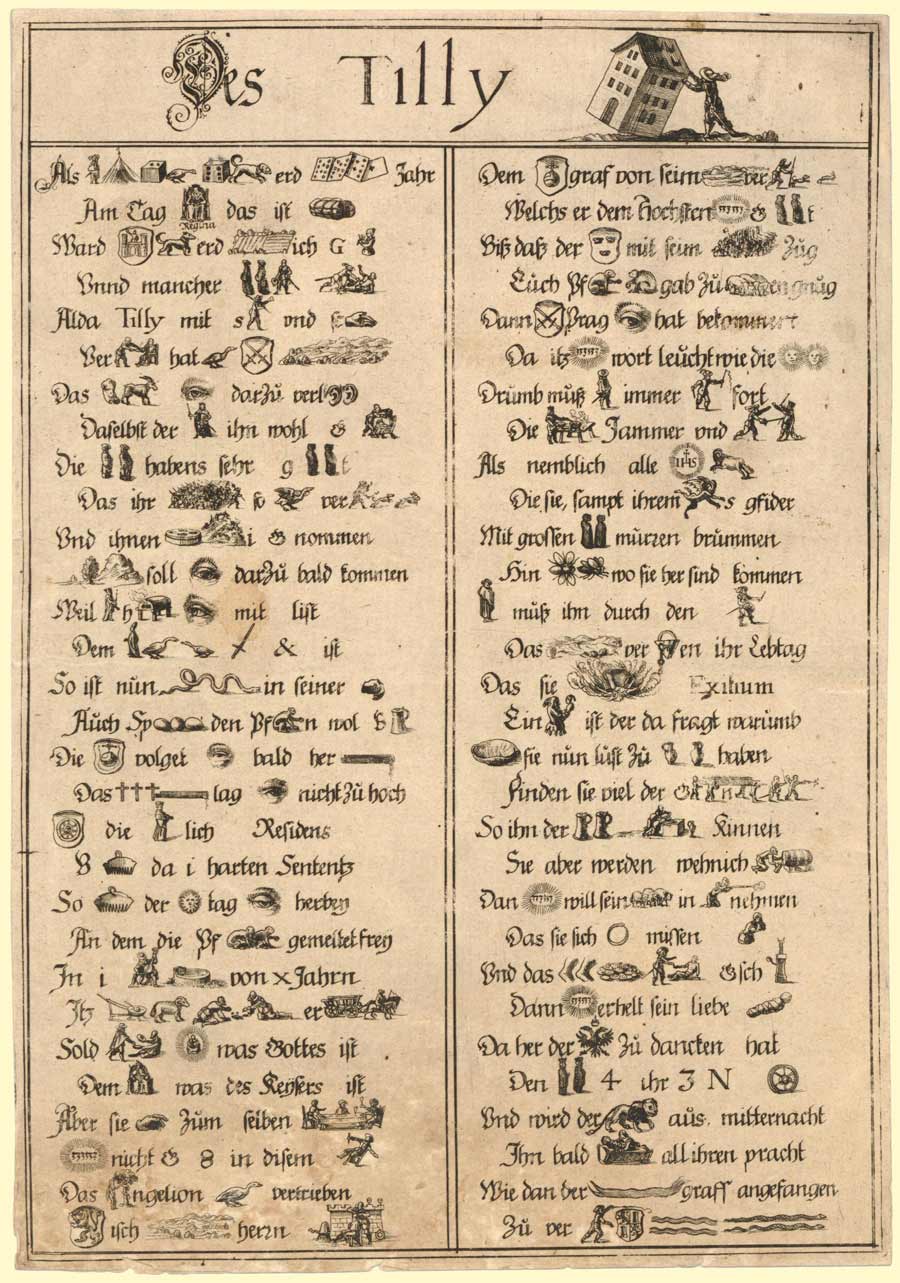 Des Tilly
Als erd Jahr
Am Tag das ist
Regina
Ward erd ich G
Vnnd mancher
Alda Tilly mit s vnd se
Ver hat
Das darzu verl
Daselbst der ihn wohl G
Die habens sehr g t
Das ihr so ver
Vnd ihnen i G nommen
soll darzu bald kommen
Weil h mit list
Dem & ist
So ist nun in seiner
Auch Sp den Pf n wol B
Die volget bald her
Das lag nicht zu hoch
die lich Residens
8 da i harten Sententz
So der tag herbey
An dem die Pf gemeltet frey
In i von x Jahrn
Itz er
Sold was Gottes ist
Dem was des Keysers ist
Aber sie zum selben
nicht G 8 in disem
Das Angelion vertrieben
isch herrn
Dem graf von seim ver
Welchs er dem Hochsten G t
Biß daß der mit seim Zug
Euch Pf gab zu en gnug
Dann Prag hat bekommen
Da itz wort leucht wie die
Drumb muß immer fort
Die Jammer vnd
Als nemblich alle IHS
Die sie, sampt ihrem s gfider
Mit grossen murren brummen
Hin wo sie her sind kommen
muß ihn durch den
Das ver en ihr Lebtag
Das sie Exilium
Ein ist der da fragt warumb
sie nun lust zu haben
Finden sie viel der G
So ihn der Kinnen
Sie aber werden wehnich
Dan will sein in nehmen
Das sie sich mussen
Vnd das Gsch
Dann erhelt sein liebe
Da her der zu dancken hat
Den 4 ihr 3 N
Vnd wird der aus mitternacht
Ihn bald all ihren pracht
Wie dan der graff angefangen
Zu ver